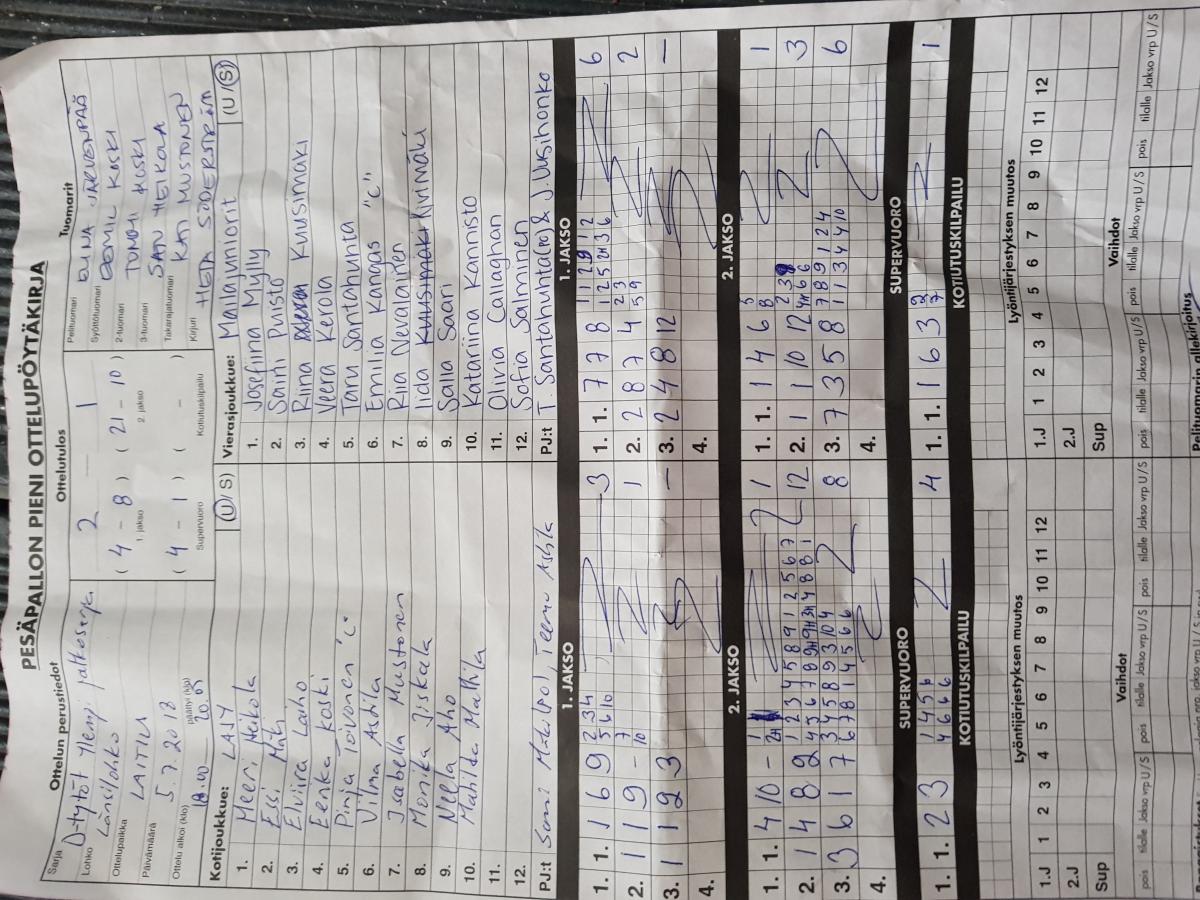 PESÄPALLON PIENI OTTELUPÖYTÄKIRJA
Ottelun perustiedot
Sarja D-tytöt ylempi jatkosarja
Lohko Länsilohko
Ottelupaikka LAITILA
Päivämäärä 5.7.2018
Ottelu alkoi (klo) 18.00 päättyi (klo) 20.05
Ottelutulos
2 – 1
( 4 - 8 ) ( 21 - 10 )
1. jakso 2. jakso
( 4 - 1 ) ( - )
Supervuoro Kotiutuskilpailu
Tuomarit
Pelituomari ELINA JÄRVENPÄÄ
Syöttötuomari EEMIL KOSKI
2-tuomari TUOMI
3-tuomari SANI HEIKOLA
Takarajatuomari KATI MUSTONEN
Kirjuri HETA SÖDERSTRÖM
Kotijoukkue: LASY (U/S)
1. Meeri Heikola
2. Essi Mati
3. Elviira Laiho
4. Eerika Koski
5. Pinja Toivonen "C"
6. Vilma Ashla
7. Isabella Mustonen
8. Monika Jiskala
9. Neella Aho
10. Mathilda Mattila
11.
12.
PJ:t Sami Maku (PO), Teemu Ashla
Vierasjoukkue: Manlahti Juniorit (U/S)
1. Josefiina Mylly
2. Saini Puisto
3. Riina Kuusimäki
4. Veera Kerola
5. Taru Santahuhta
6. Emilia Kangas "C"
7. Riia Nevalainen
8. Iida Kuusimäki Kivimäki
9. Salla Saari
10. Katariina Kannisto
11. Olivia Callaghan
12. Sofia Salminen
PJ:t T. Santahuhta(PO) & J. Uusihonko
1. JAKSO
1. 1. 1 6 9 2 3 4 3
5 6 10
2. 1 1 9 - 7 1
10
3. 1 1 2 3 –
4.
1. JAKSO
1. 1. 7 7 8 1 1 2 9 1 2 6
2. 2 8 7 4 2 3 2
5 9
3. 2 4 8 12 –
4.
2. JAKSO
1. 1. 4 10 - 1
2. 1 4 8 9 2 1 2 3 4 5 8 9 1 2 5 6 7 12
3. 3 6 1 7 3 4 5 8 9 3 10 4 8
6 7 8 1 4 5 6 6
4.
2. JAKSO
1. 1. 1 4 6 5 1
8
2. 1 1 10 12 3
3. 7 3 5 8 7 8 9 1 2 4 6
1 1 3 4 4 10
4.
SUPERVUORO
1. 1. 2 3 1 4 5 6 4
4 6 6 6
SUPERVUORO
1. 1. 1 6 3 2 1
7
KOTIUTUSKILPAILU
KOTIUTUSKILPAILU
Lyöntijärjestyksen muutos
1.J 1 2 3 4 5 6 7 8 9 10 11 12
2.J
Sup
Lyöntijärjestyksen muutos
1.J 1 2 3 4 5 6 7 8 9 10 11 12
2.J
Sup
Vaihdot
pois tilalle Jakso vrp U/S pois tilalle Jakso vrp U/S pois tilalle Jakso vrp U/S
Vaihdot
pois tilalle Jakso vrp U/S pois tilalle Jakso vrp U/S pois tilalle Jakso vrp U/S
Pelituomarin allekirjoitus